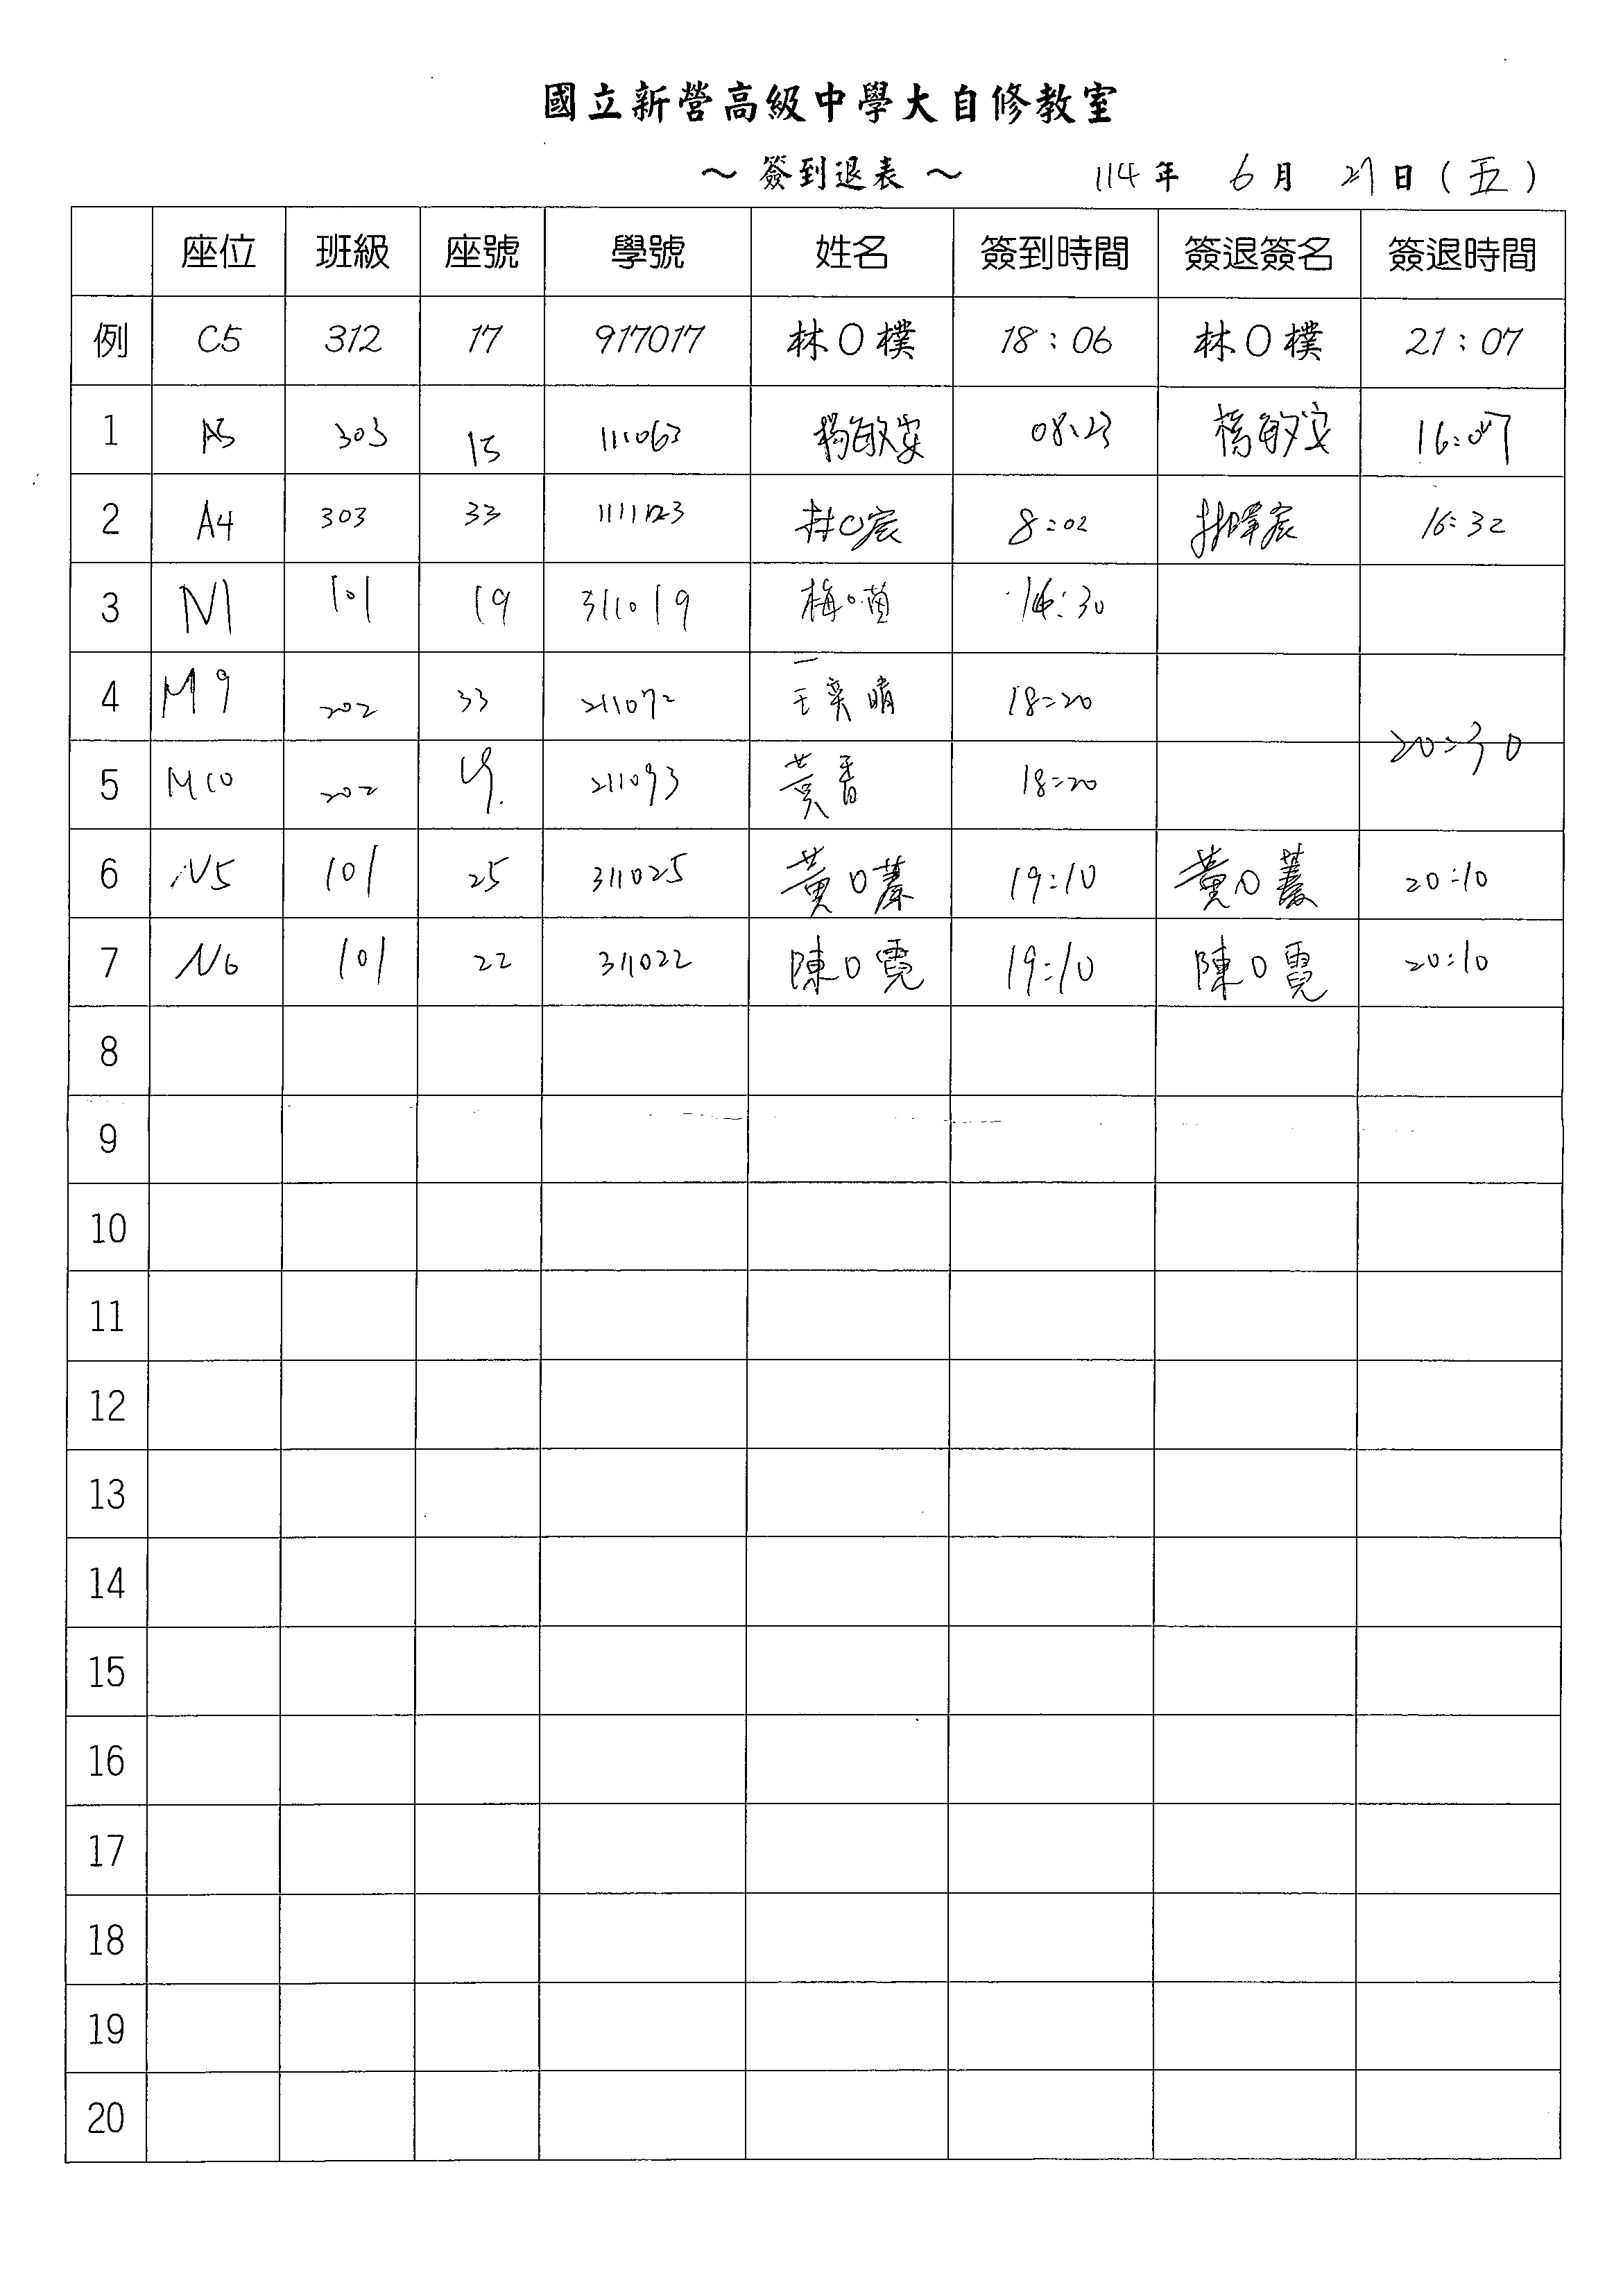 國立新營高級中學大自修教室
～ 簽到退表 ～ 114 年 6 月 27 日 ( 五 )
座位 班級 座號 學號 姓名 簽到時間 簽退簽名 簽退時間
例 C5 312 17 917017 林O樸 18：06 林O樸 21：07
1 A5 303 15 111063 楊敏安 08:23 楊敏安 16:07
2 A4 303 33 8:02 16:32
3 101 19 311019 30
4 M9 202 33 211072 王奕晴 18:20
20:30
5 M10 202 211093 黃香 18:20
6 N5 101 25 311025 黃O蓁 19:10 黃O蓁 20:10
7 N6 101 22 311022 陳O霓 19:10 陳O霓 20:10
8
9
10
11
12
13
14
15
16
17
18
19
20